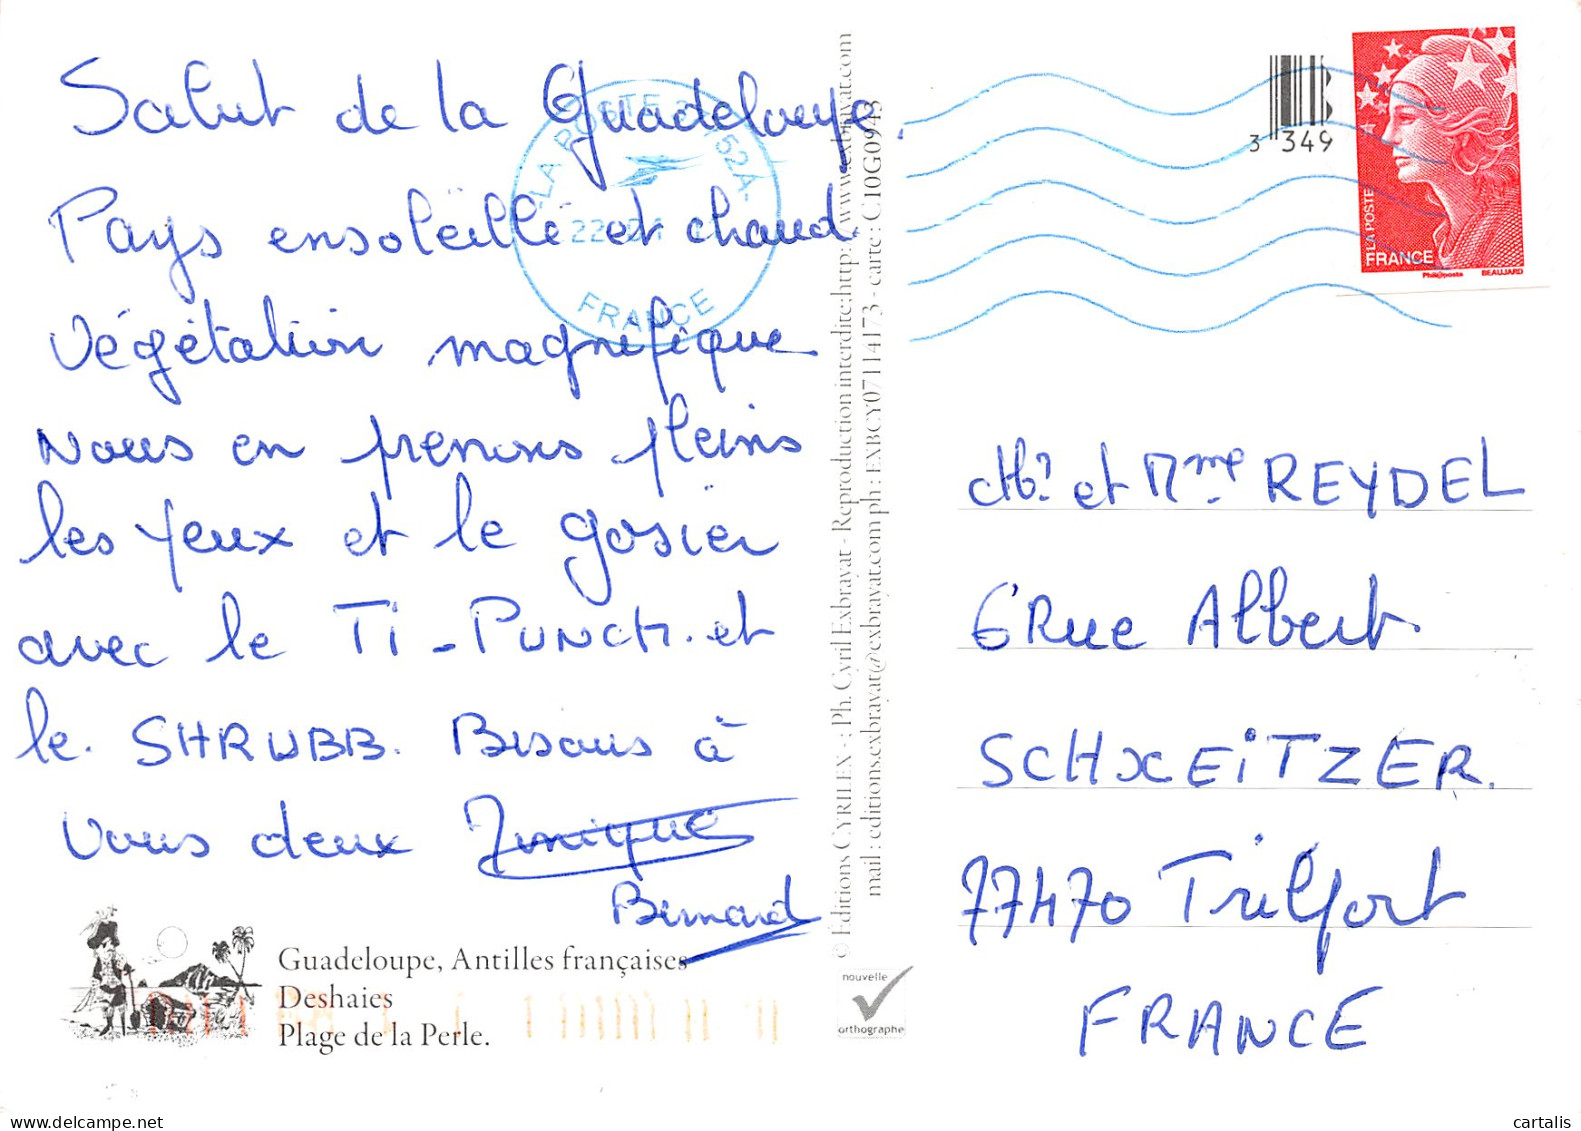 Salut de la Guadeloupe.
Pays ensoleillé et chaud
Végétation magnifique
Nous en prenons pleins
les yeux et le gosier
avec le TI-PUNCH. et
le. SHRUBB. Bisous à
vous deux
Bernard
Guadeloupe, Antilles françaises
Deshaies
Plage de la Perle.
LA POSTE 52A
22
FRANCE
© Editions CYRILEX - : Ph. Cyril Exbrayat - Reproduction interdite:http://www.exbrayat.com
mail : editions.exbrayat@exbrayat.com ph : EXBCY07114173 - carte : C10G0943
nouvelle
orthographe
3 349
LA POSTE
FRANCE
Phil@poste BEAUJARD
Mr et Mme REYDEL
6 Rue Albert
SCHWEITZER.
77470 Trilport
FRANCE
cartalis
delcampe.net